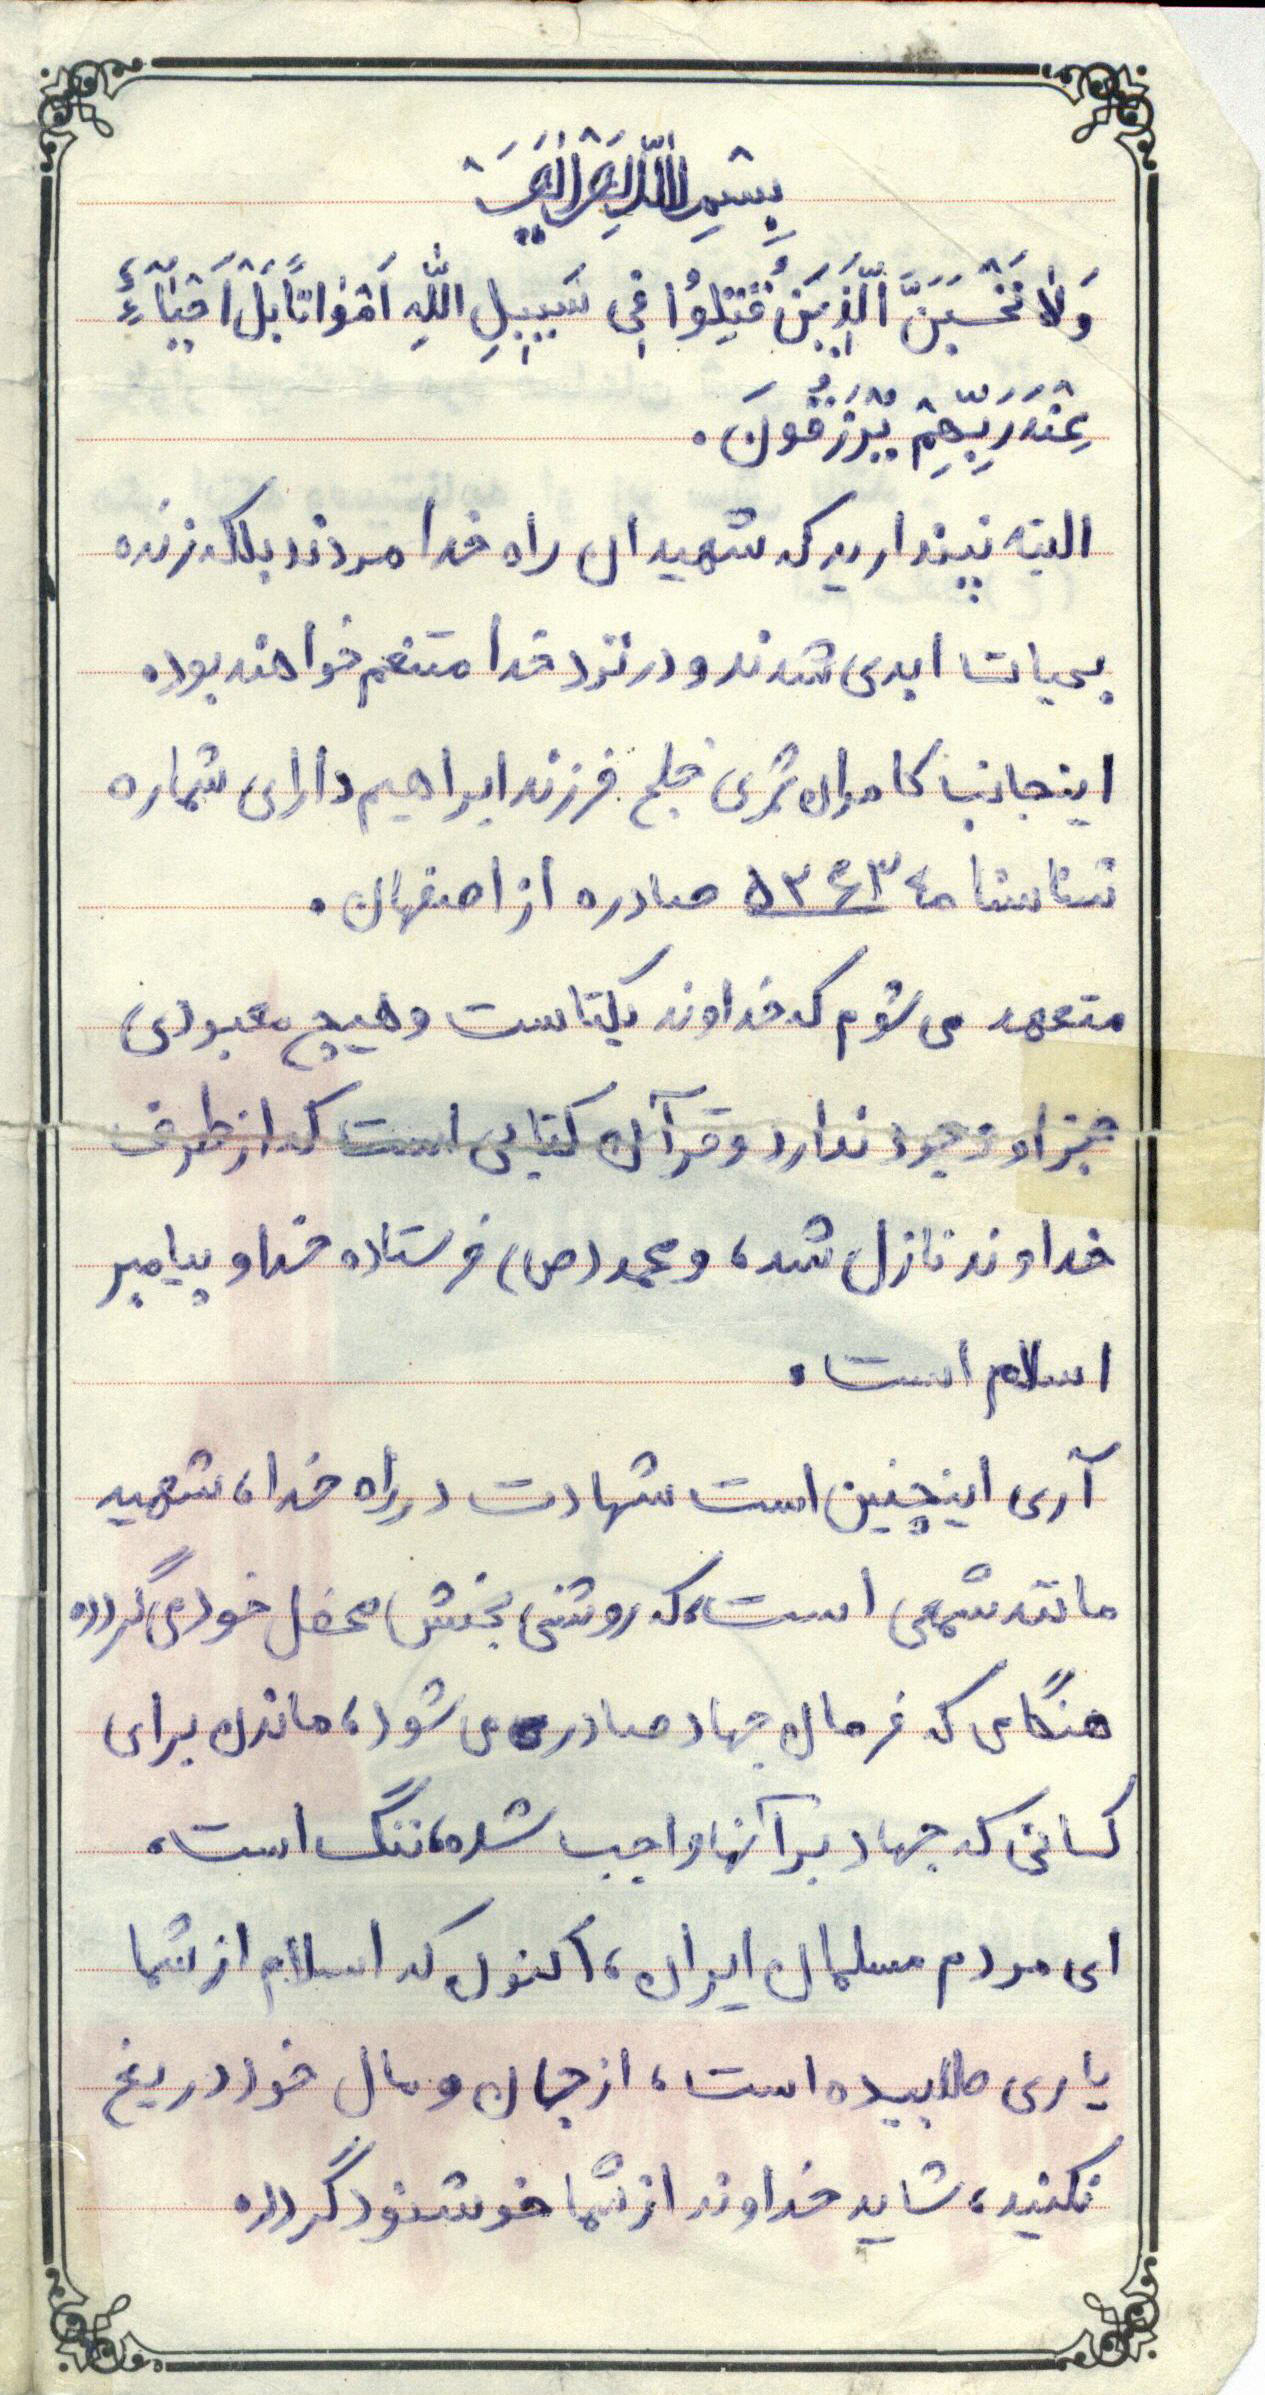 بِسْمِ اللّٰهِ الرَّحْمٰنِ الرَّحيمْ
وَلاٰ تَحْسَبَنَّ الَّذٖينَ قُتِلُوُا فٖى سَبيٖلِ اللّٰهِ اَمْوٰاتاً بَلْ اَحْيٰاۤءٌ
عِنْدَ رَبِّهِمْ يُرْزَقُونَ.
البته نپندارید که شهیدان راه خدا مردند بلکه زنده
بحیات ابدی شدند و در نزد خدا متنعم خواهند بود.
اینجانب کامران فرزند ابراهیم دارای شماره
شناسنامه صادره از اصفهان.
متعهد می شوم که خداوند یکتاست و هیچ معبودی
جز او وجود ندارد و قرآن کتابی است که از طرف
خداوند نازل شد، و محمد (ص) فرستاده خدا و پیامبر
اسلام است.
آری اینچنین است شهادت در راه خدا، شهید
مانند شمعی است، که روشنی بخش محفل خود می گردد.
هنگامی که فرمان جهاد صادر می شود، ماندن برای
کسانی که جهاد بر آنها واجب شده، ننگ است.
ای مردم مسلمان ایران، اکنون که اسلام از شما
یاری طلبیده است، از جان و مال خود دریغ
نکنید، شاید خداوند از شما خوشنود گردد.